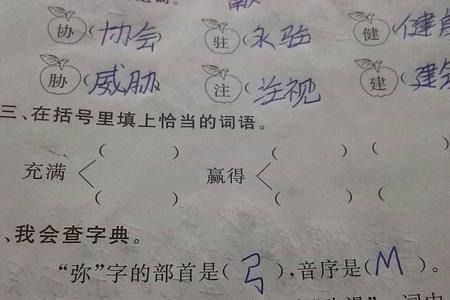 协(协会 驻(永驻 健(健
胁(威胁) 注(注视 建(建
三、在括号里填上恰当的词语。
( ) ( ) (
充满< 赢得<
( ) ( ) (
、我会查字典。
“弥”字的部首是(弓),音序是(M)。